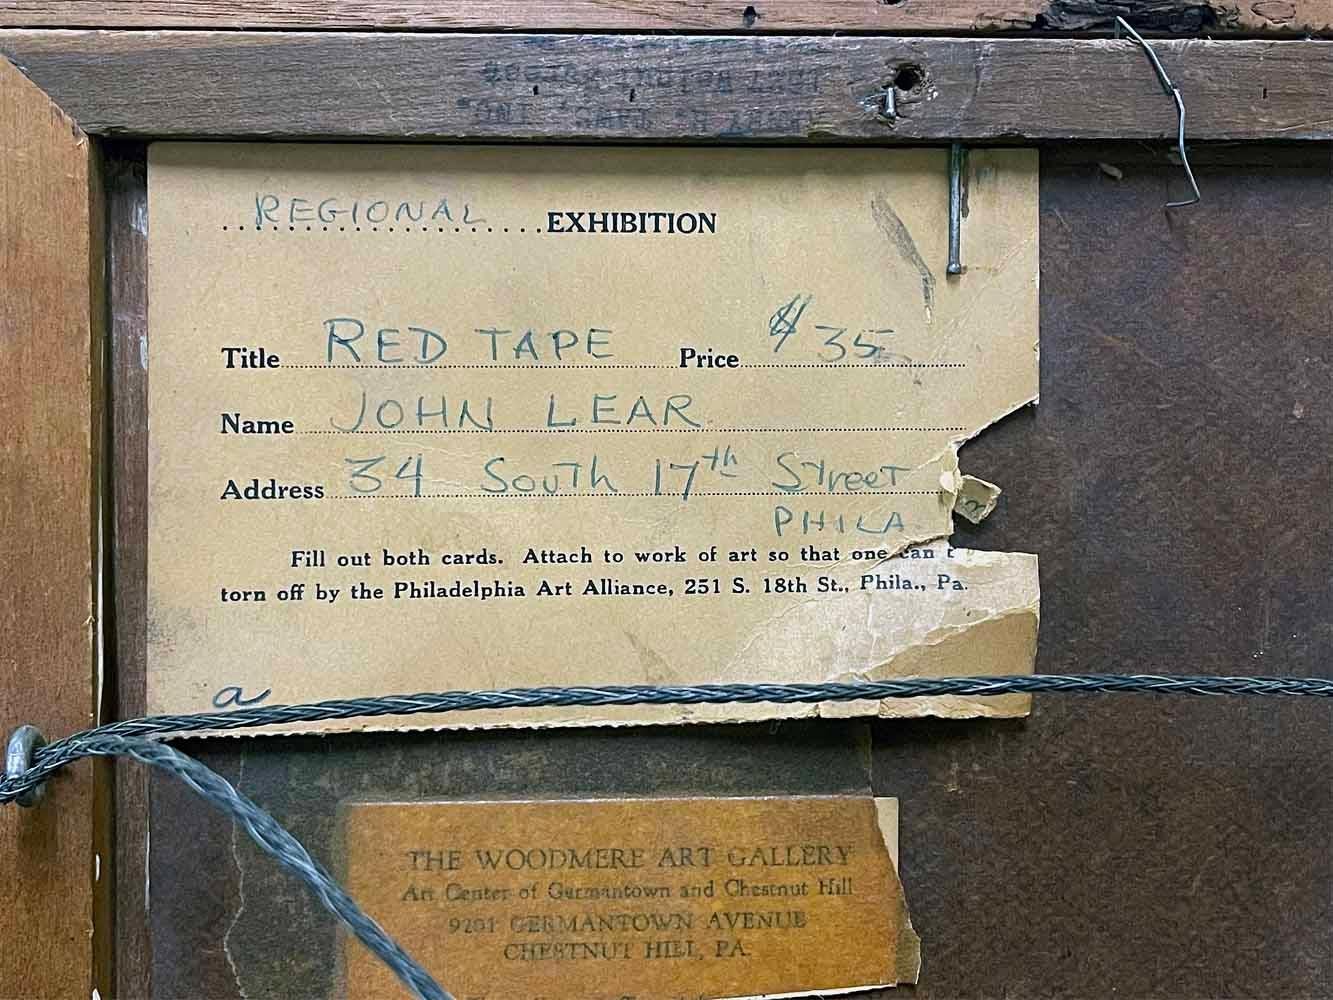 REGIONAL EXHIBITION
Title RED TAPE Price $35
Name JOHN LEAR
Address 34 South 17th Street
PHILA
Fill out both cards. Attach to work of art so that one can
torn off by the Philadelphia Art Alliance, 251 S. 18th St., Phila., Pa.
a
THE WOODMERE ART GALLERY
Art Center of Germantown and Chestnut Hill
9201 GERMANTOWN AVENUE
CHESTNUT HILL, PA.